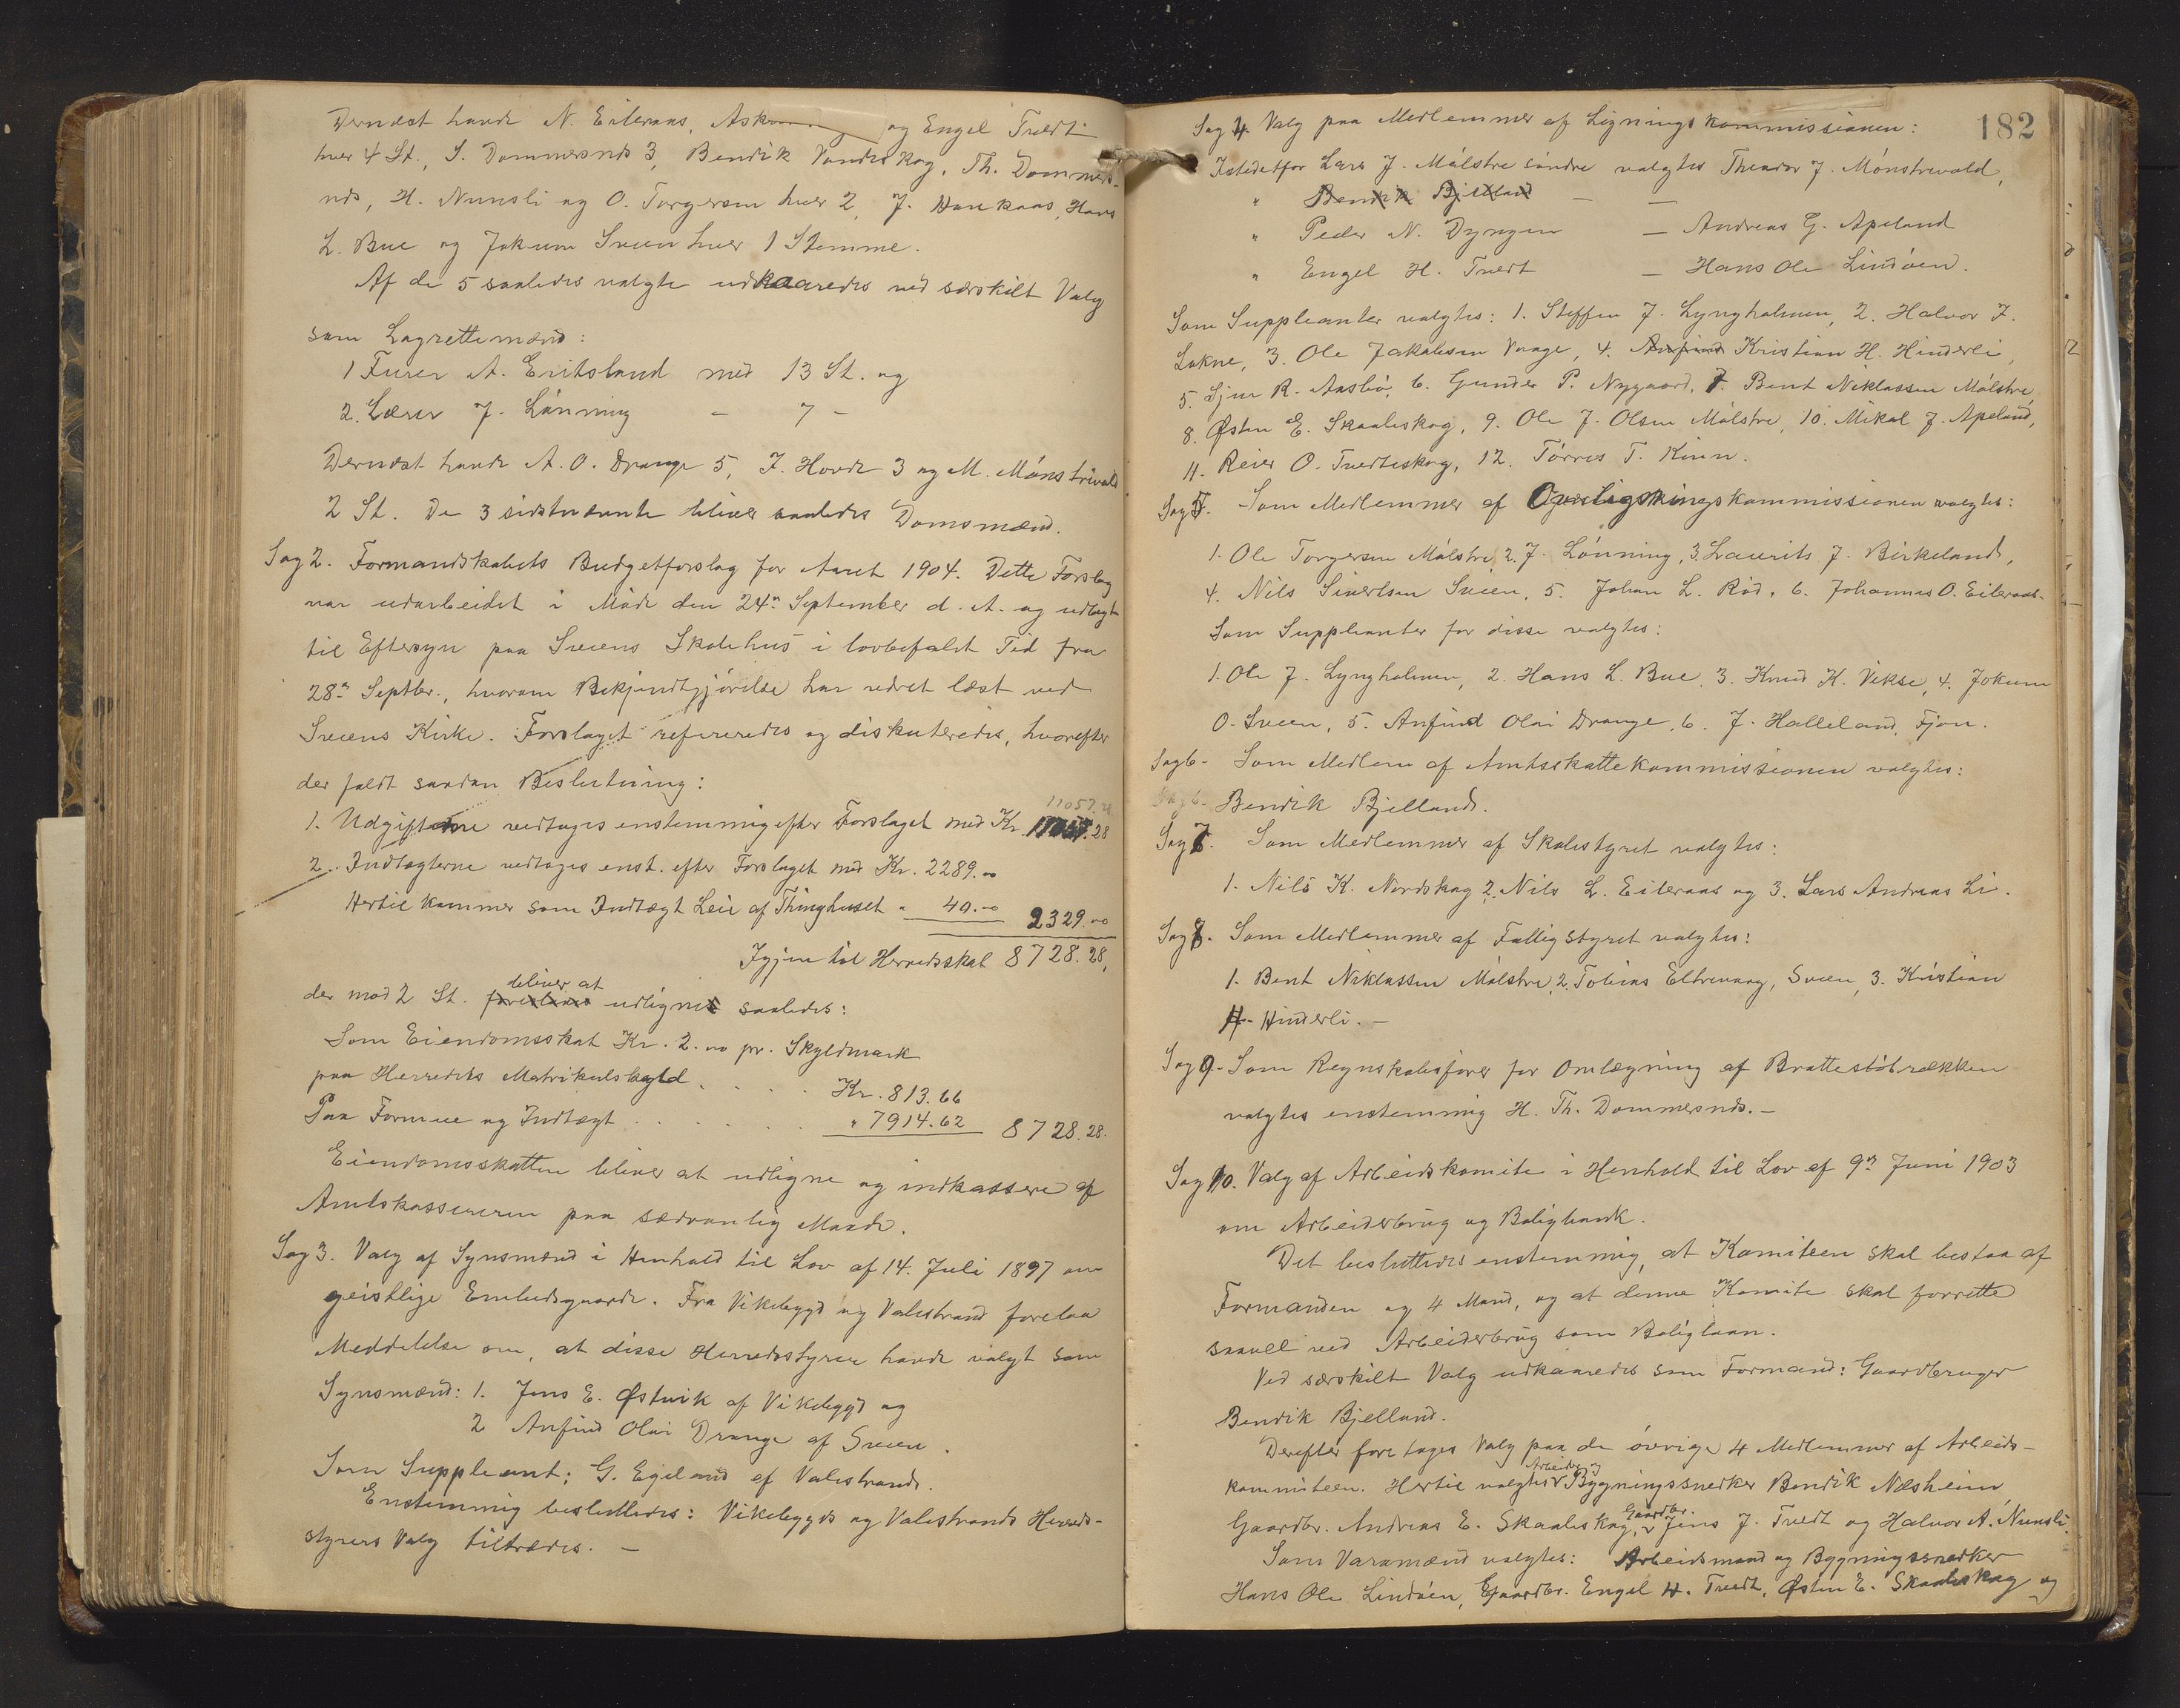 Dernæst havde N. Eileraas, og Engel Tvedt
hver 4 St., S. Dommersnds 3, Bendik Vandskog, Th. Dommers-
nds, H. Nunsli og O. Torgersen hver 2, J. Haukaas, Hans
L. Bue og Jokum Sveen hver 1 Stemme.
Af de 5 saaledes valgte udkaaredes ved særskilt Valg
som Lagrettemænd:
1 Furer A. Eritsland med 13 St. og
2. Lærer J. Lönning - 7 -
Dernæst havde A. O. Drange 5, J. Hovde 3 og M. Mönstrevold
2 St. De 3 sidstnævnte bliver saaledes Domsmænd.
Sag 2. Formandskabets Budgetforslag for Aaret 1904. Dette Forslag
var udarbeidet i Möde den 24n September d. A. og udlagt
til Eftersyn paa Sveens Skolehus i lovbefalet Tid fra
28n Septbr., hvorom Bekjendtgjörelse har været læst ved
Sveens Kirke. Forslaget refereredes og diskuteredes, hvorefter
der faldt saadan Beslutning:
11057.28
1. Udgifterne vedtoges enstemmig efter Forslaget med Kr. 11057.28
2. Indtægterne vedtoges enst. efter Forslaget med Kr. 2289.00
Hertil kommer som Indtægt Leie af Thinghuset " 40.00 2329.00
Igjen til Herredsskat 8728.28,
bliver at
der mod 2 St. udligne saaledes:
Som Eiendomsskat Kr. 2.00 pr. Skyldmark
paa Herredets Matrikulskyld . . . . Kr. 813.66
Paa Formue og Indtægt . . . . . . " 7914.62 8728.28.
Eiendomsskatten bliver at udligne og indkassere af
Amtskassereren paa sædvanlig Maade.
Sag 3. Valg af Synsmænd i Henhold til Lov af 14. Juli 1897 om
geistlige Embedsgaarde. Fra Vikebygd og Valestrand forelaa
Meddelelse om, at disse Herredsstyrer havde valgt som
Synsmænd: 1. Jens E. Østvik af Vikebygd og
2 Anfind Olai Drange af Sveen.
Som Suppleant: G. Egeland af Valestrand.
Enstemmig besluttedes: Vikebygds og Valestrands Herreds-
styrers Valg tiltrædes. -
182
Sag 4. Valg paa Medlemmer af Ligningskommissionen:
Istedetfor Lars J. Målstre söndre valgtes Theodor J. Mönstrevold,
" Bendik Bjelland - -
" Peder N. Dyngen - Andreas G. Apeland
" Engel H. Tvedt - Hans Ole Lindöen.
Som Suppleanter valgtes: 1. Steffen J. Lyngholmen, 2. Halvor J.
Lokne, 3. Ole Jakobsen Vaage, 4. Anfind Kristian H. Hinderli,
5. Sjur R. Aasbö, 6. Gunder P. Nygaard, 7. Bent Niklassen Målstre,
8. Østen E. Skaaleskog, 9. Ole J. Olsen Målstre, 10. Mikal J. Apeland,
11. Reier O. Tvedteskog, 12. Törres T. Kinn.
Sag 5. Som Medlemmer af Overligningskommissionen valgtes:
1. Ole Torgersen Målstre, 2. J. Lönning, 3. Laurits J. Birkeland,
4. Nils Sivertsen Sveen, 5. Johan L. Röd, 6. Johannes O. Eileraas.
Som Suppleanter for disse valgtes:
1. Ole J. Lyngholmen, 2. Hans L. Bue, 3. Knud K. Vikse, 4. Jokum
O. Sveen, 5. Anfind Olai Drange, 6. J. Halleland, Fjon.
Sag 6. Som Medlem af Amtsskattekommissionen valgtes:
Sag 6. Bendik Bjelland.
Sag 7. Som Medlemmer af Skolestyret valgtes:
1. Nils K. Nordskog 2. Nils L. Eileraas og 3. Lars Andreas Li.
Sag 8. Som Medlemmer af Fattigstyret valgtes:
1. Bent Niklassen Målstre, 2. Tobias Eltrevaag, Sveen, 3. Kristian
H. Hinderli. -
Sag 9. Som Regnskabsförer for Omlægning af Brattestöbrækken
valgtes enstemmig H. Th. Dommersnds. -
Sag 10. Valg af Arbeidskomite i Henhold til Lov af 9n Juni 1903
om Arbeiderbrug og Boligbank.
Det besluttedes enstemmig, at Komiteen skal bestaa af
Formanden og 4 Mænd, og at denne Komite skal forrette
saavel ved Arbeiderbrug som Boliglaan.
Ved særskilt Valg udkaaredes som Formand: Gaardbruger
Bendik Bjelland.
Derefter foretoges Valg paa de övrige 4 Medlemmer af Arbeids-
Arbeider og
kommiteen. Hertil valgtes Bygningssnedker Bendik Næsheim
Gaardbr.
Gaardbr. Andreas E. Skaaleskog, Jens J. Tvedt og Halvor A. Nunsli.
Som Varamænd valgtes: Arbeidsmand og Bygningssnedker
Hans Ole Lindöen, Gaardbr. Engel H. Tvedt, Østen E. Skaaleskog og